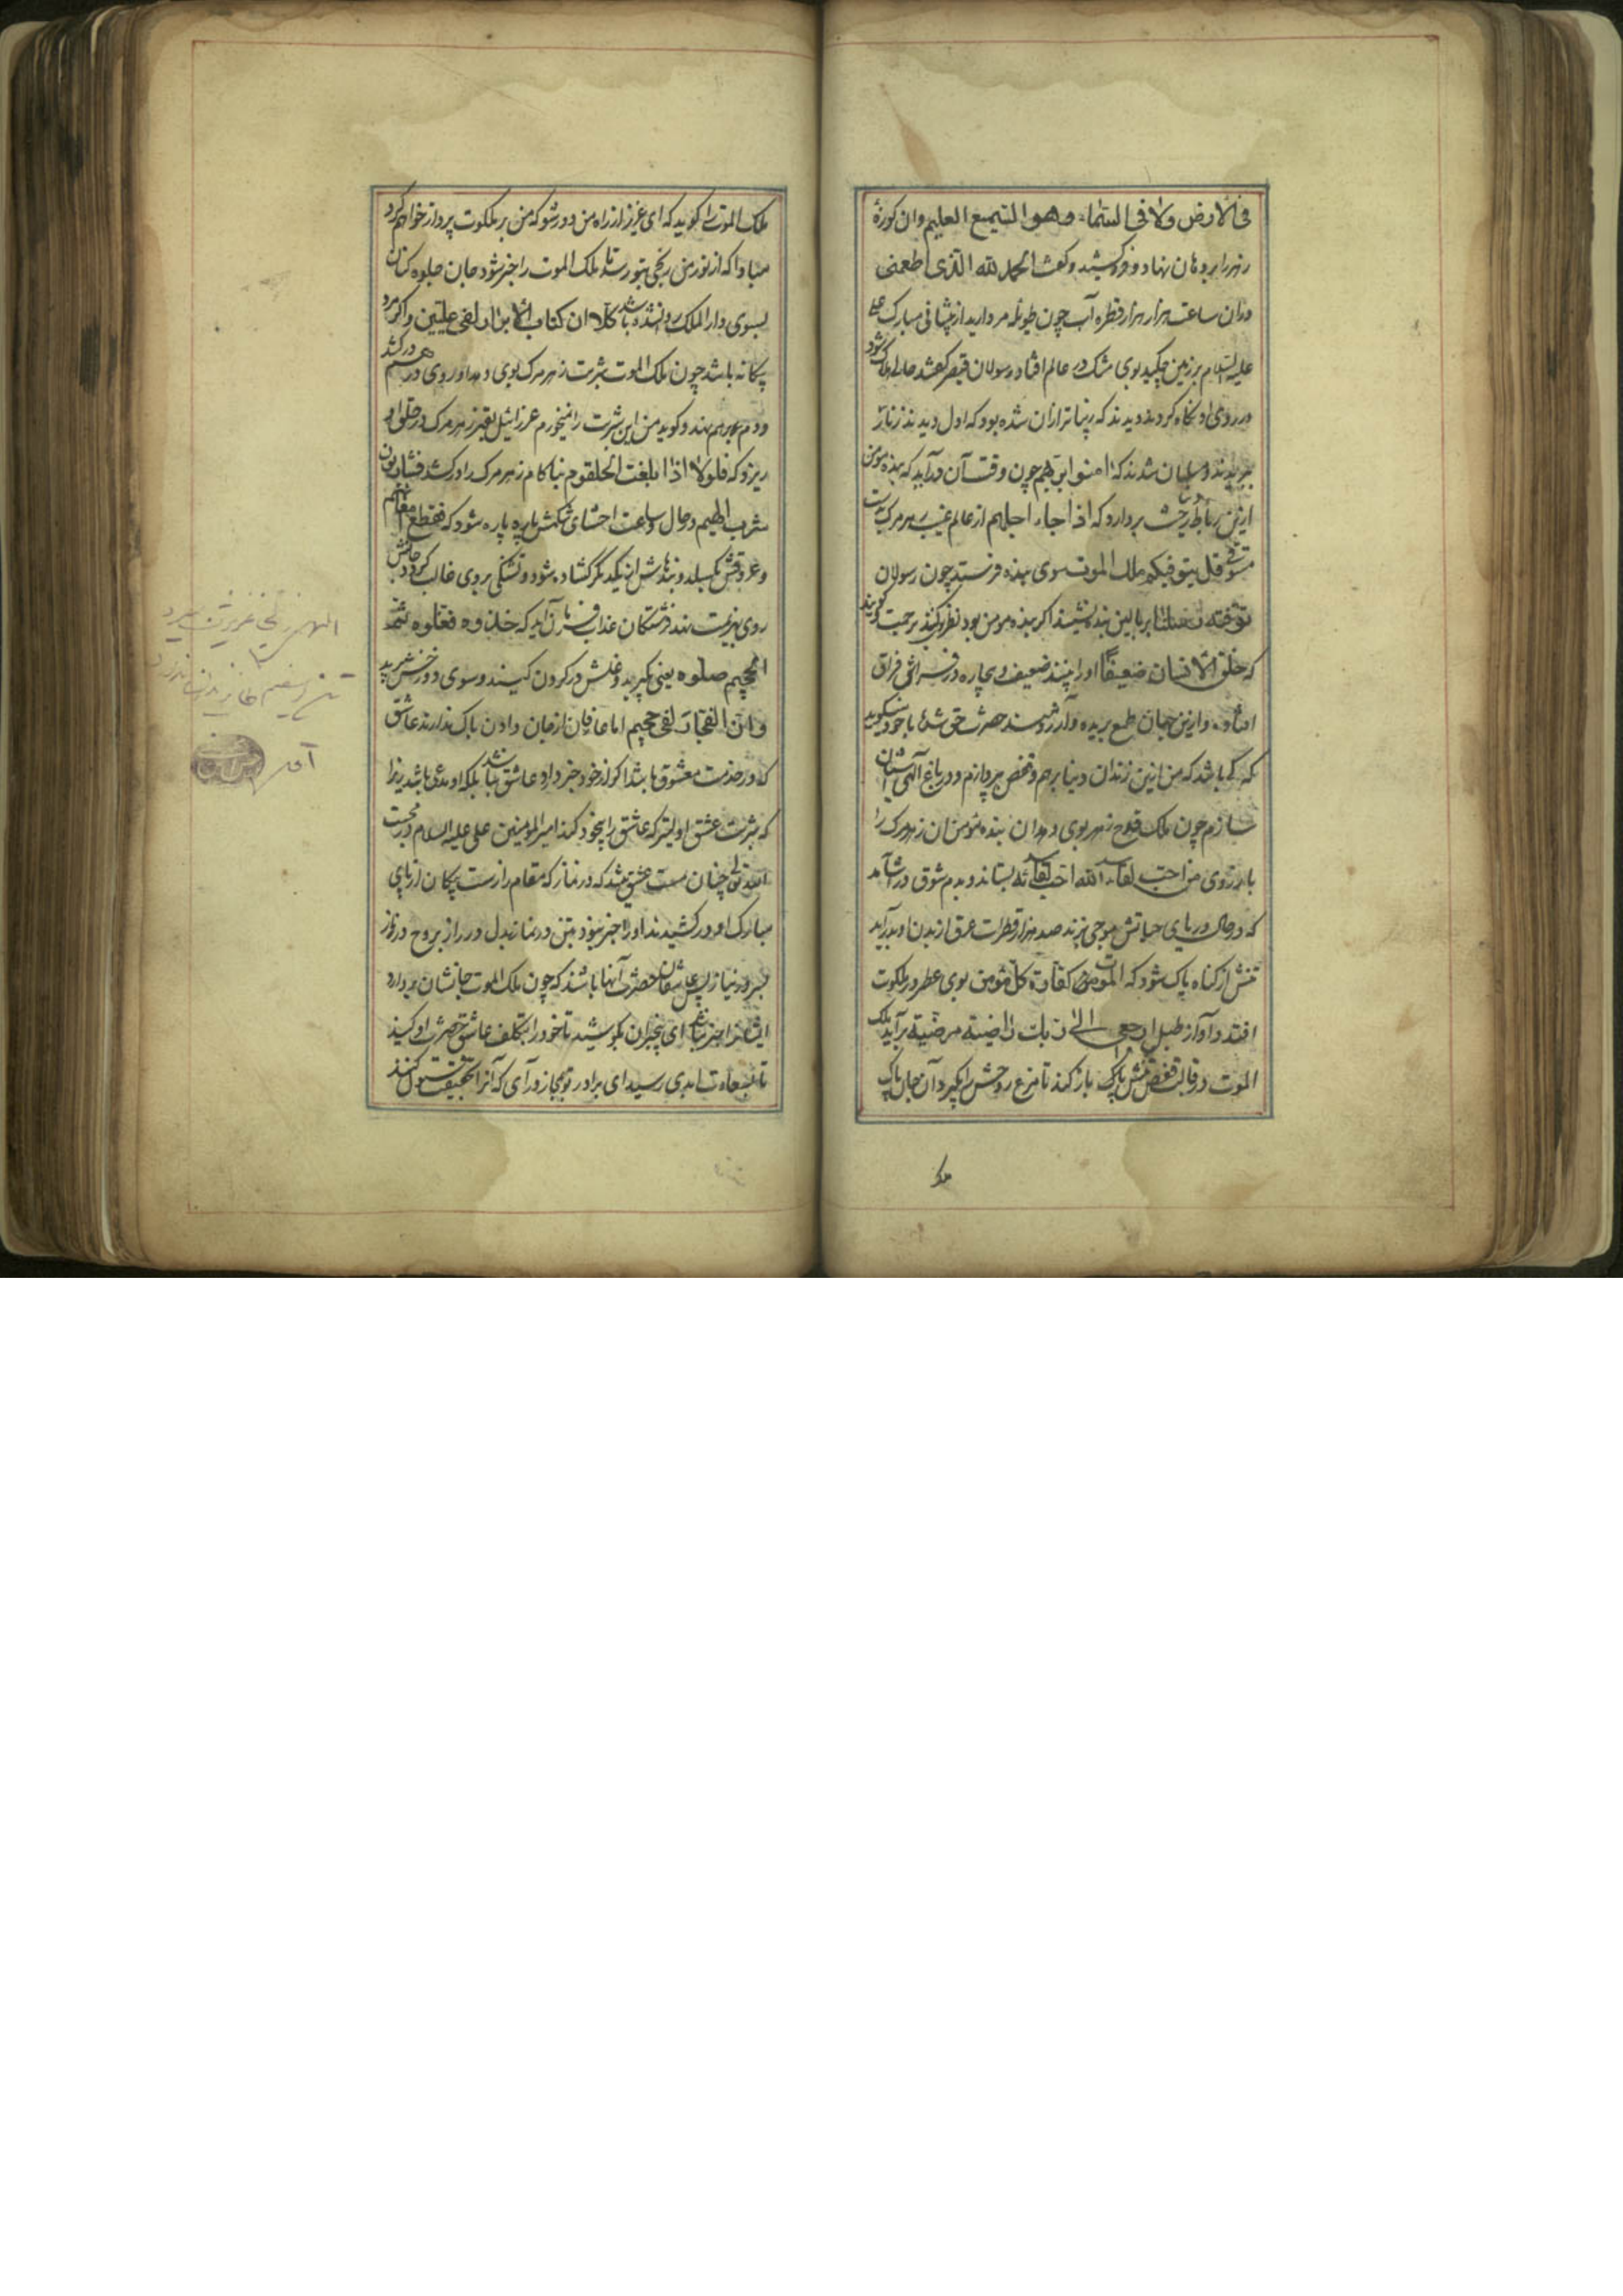 فی الارض ولا فی السماء وهو السمیع العلیم وان کوزهٔ
زهر را بر دهان نهاد و فروکشید و کفت الحمد لله الذی اطعمنی
دران ساعت هزار هزار قطره آب چون طویله مروارید از پیشانی مبارک علی
علیه السلام بر زمین چکید بوی مشک در عالم افتاد رسولان قیصر کفتند حالی هلاک شود
در روی او نکاه کردند دیدند که زیباتر ازان شده بود که اول دیدند زنار
ببریدند و مسلمان شدند که امنوا بربهم چون وقت آن درآید که بنده مومن
ازین رباط رخت بردارد که اذا جاء اجلهم از عالم غیب زهر مرک بدست
قل یتوفیکم ملک الموت سوی بنده فرستد چون رسولان
توفته رسلنا بر بالین بنده نشیند اکر بنده مومن بود نظر کنند برحمت کویند
که خلق الانسان ضعیفا او را بینند ضعیف و بیچاره در فراش فراق
افتاده وازین جهان طمع بریده و آرزومند حضرت حق شده با خود میکوید
که کی باشد که من ازین زندان دنیا برهم و قفص بپردازم و در باغ آلهی آشیان
سازم چون ملک قدح زهر بوی دهد ان بنده مومن ان زهر مرک را
بارزوی من احب لقاء الله احب لقائه بستاند و بدم شوق درآشامد
که در حال دریای حیاتش موجی بزند صد هزار قطرات عرق از بدن او بدرآید
تنش از کناه پاک شود که الموت کفارة کل مؤمن بوی عطر در ملکوت
افتد و آواز طبل ارجعی الی ربک راضیة مرضیة برآید ملک
الموت در قالب قفص تنش پاک باز کند تا مرغ روحش را بکیرد آن جان پاک
ملک
ملک الموت را کوید که ای عزیز از راه من دور شو که من بر ملکوت پرواز خواهم کرد
مبادا که از نور من رنجی بتو رسد تا ملک الموت را خبر شود جان جلوه کنان
بسوی دار الملک روانه شده باشد کلا ان کتاب الابرار لفی علیین و اکر مرد
بیکانه باشد چون ملک الموت شربت زهر مرک بوی دهد او روی درهم درکشد
و دم برهم نهد و کوید من این شربت را نمیخورم عزرائیل بقهر زهر مرک در حلق او
ریزد که فلولا اذا بلغت الحلقوم بناکام زهر مرک را درکشد فشاربون
شرب الهیم در حال و ساعت احشای شکمش پاره پاره شود که فقطع امعائهم
و عروقش بکسلد و بندهاش از یکدیکر کشاده شود و تشنکی بر وی غالب کردد جانش
روی بهزیمت نهد فرشتکان عذاب را فرمان آید که خذوه فغلوه ثم
الجحیم صلوه یعنی بکیرید و غلش در کردن کنید و سوی دوزخش برید
وان الفجار لفی جحیم اما عارفان از جان دادن باک ندارند عاشق
که در خدمت معشوق باشد اکر از خود خبر دارد عاشق نباشد بلکه او مدعی باشد زیرا
که شربت عشق اولیتر که عاشق را بیخود کند امیر المومنین علی علیه السلام در محبت
چنان مست عشق شد که در نماز که مقام راز است پیکان از پای
مبارک او درکشیدند او را خبر نبود بتن در نماز بدل در راز بروح در نیاز
بسر در نیاز پس عاشقان حضرت آنها باشند که چون ملک الموت جانشان بردارد
ایشانرا خبر نباشد ای بیخبران بکوشید تا خود را بتکلف عاشق حضرت او کنید
تا بسعادت ابدی رسید ای برادر تو بمجاز درآی که آنرا بحقیقت قبول کنند